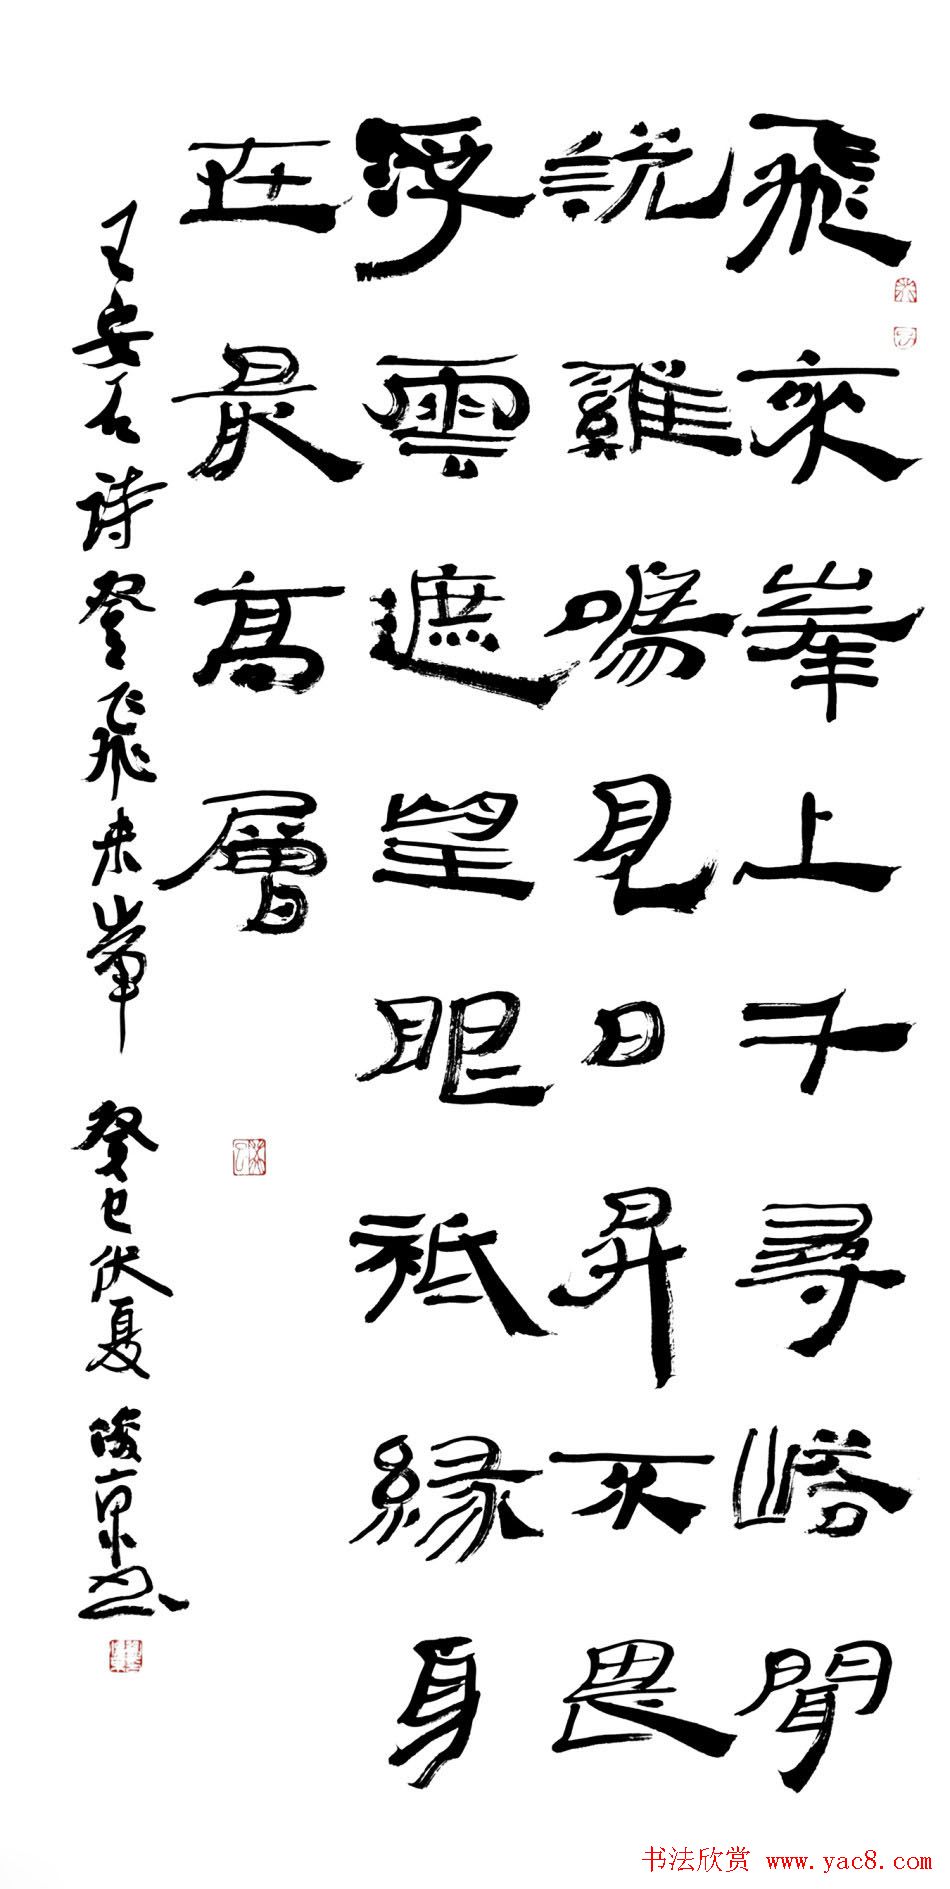 飛來峯上千尋塔聞
説雞鳴見日昇不畏
浮雲遮望眼祗緣身
在最高層
王安石诗登飛来峯 癸巳伏夏 俊京书
书法欣赏 www.yac8.com